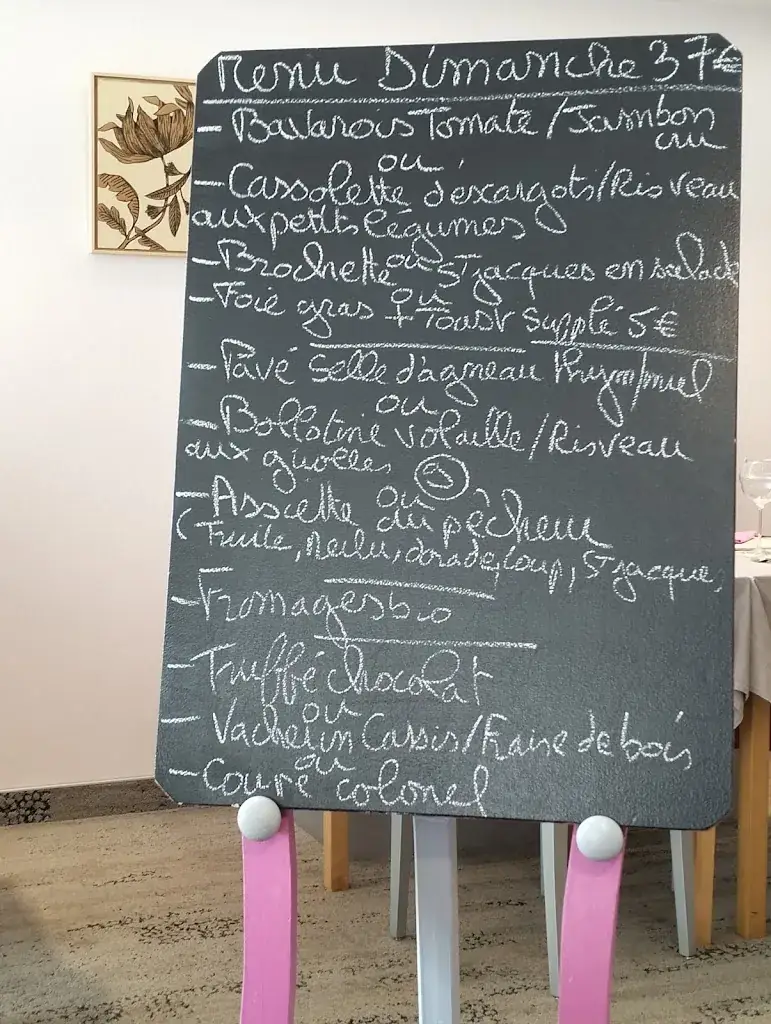 Menu Dimanche 37€
- Bavarois Tomate / Jambon
cru
ou
- Cassolette d'escargots / Ris veau
aux petits légumes
ou
- Brochette St jacques en salade
ou
- Foie gras + Toast Supplé 5€
- Pavé Selle d'agneau Thym/miel
ou
- Ballotine volaille / Ris veau
aux girolles
ou
- Assiette du pêcheur
(Truite, Merlu, dorade, loup, St jacques
- Fromages bio
- Truffé chocolat
ou
- Vacherin Cassis / Fraise de bois
ou
- Coupe colonel